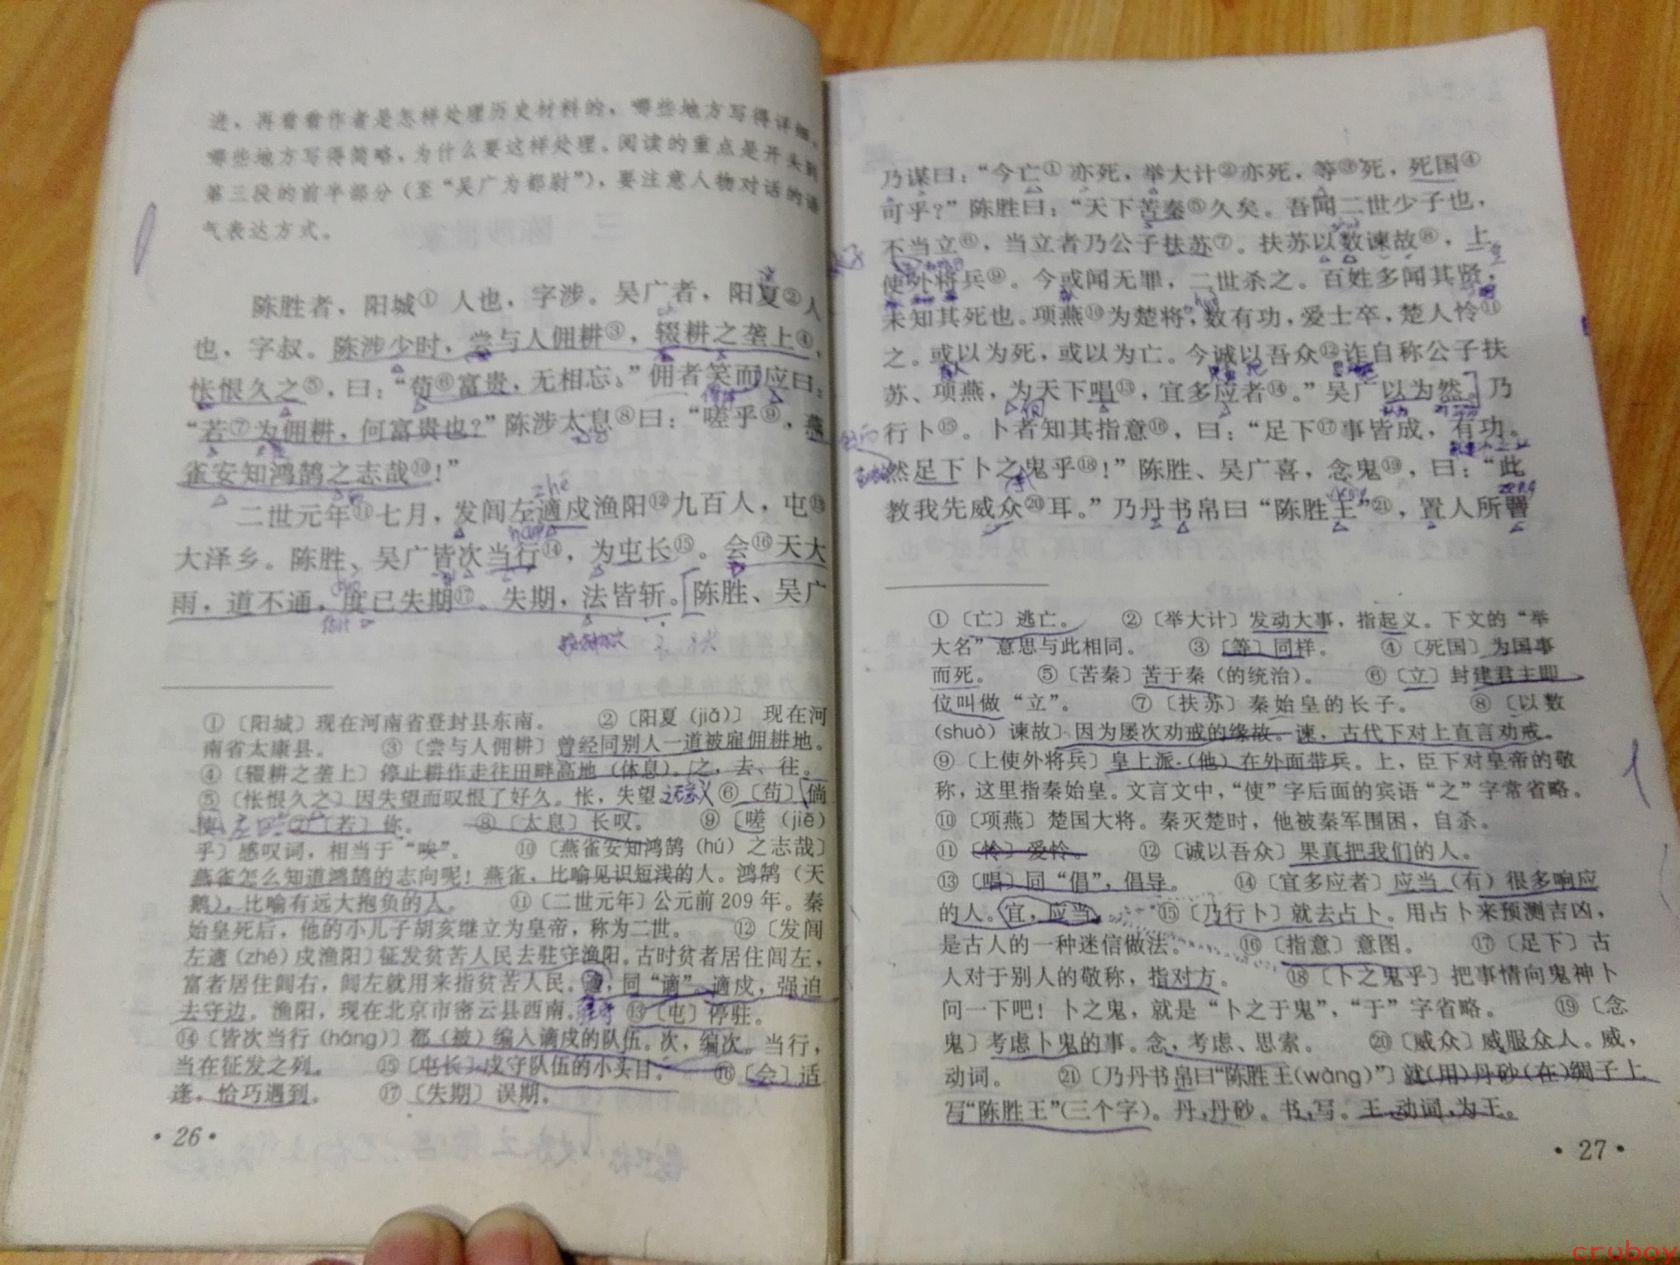 进，再看看作者是怎样处理历史材料的，哪些地方写得详细，
哪些地方写得简略，为什么要这样处理。阅读的重点是开头到
第三段的前半部分（至“吴广为都尉”），要注意人物对话的语
气表达方式。
陈胜者，阳城①人也，字涉。吴广者，阳夏②人
也，字叔。陈涉少时，尝与人佣耕③，辍耕之垄上④，
怅恨久之⑤，曰：“苟⑥富贵，无相忘。”佣者笑而应曰：
“若⑦为佣耕，何富贵也？”陈涉太息⑧曰：“嗟乎⑨，燕
雀安知鸿鹄之志哉⑩！”
zhé
二世元年⑪七月，发闾左適戍渔阳⑫九百人，屯⑬
háng
大泽乡。陈胜、吴广皆次当行⑭，为屯长⑮。会⑯天大
雨，道不通，度已失期⑰。失期，法皆斩。陈胜、吴广
①〔阳城〕现在河南省登封县东南。 ②〔阳夏（jiǎ）〕现在河
南省太康县。 ③〔尝与人佣耕〕曾经同别人一道被雇佣耕地。
④〔辍耕之垄上〕停止耕作走往田畔高地（休息）。之，去、往。
⑤〔怅恨久之〕因失望而叹恨了好久。怅，失望 ⑥〔苟〕倘
使。 ⑦〔若〕你。 ⑧〔太息〕长叹。 ⑨〔嗟（jiē）
乎〕感叹词，相当于“唉”。 ⑩〔燕雀安知鸿鹄（hú）之志哉〕
燕雀怎么知道鸿鹄的志向呢！燕雀，比喻见识短浅的人。鸿鹄（天
鹅），比喻有远大抱负的人。 ⑪〔二世元年〕公元前209年。秦
始皇死后，他的小儿子胡亥继立为皇帝，称为二世。 ⑫〔发闾
左適（zhé）戍渔阳〕征发贫苦人民去驻守渔阳。古时贫者居住闾左，
富者居住闾右，闾左就用来指贫苦人民。適，同“谪”。谪戍，强迫
去守边。渔阳，现在北京市密云县西南。 ⑬〔屯〕停驻。
⑭〔皆次当行（háng）〕都（被）编入谪戍的队伍。次，编次。当行，
当在征发之列。 ⑮〔屯长〕戍守队伍的小头目。 ⑯〔会〕适
逢，恰巧遇到。 ⑰〔失期〕误期。
·26·
乃谋曰：“今亡①亦死，举大计②亦死，等③死，死国④
可乎？”陈胜曰：“天下苦秦⑤久矣。吾闻二世少子也，
不当立⑥，当立者乃公子扶苏⑦。扶苏以数谏故⑧，上
使外将兵⑨。今或闻无罪，二世杀之。百姓多闻其贤，
未知其死也。项燕⑩为楚将，数有功，爱士卒，楚人怜⑪
之。或以为死，或以为亡。今诚以吾众⑫诈自称公子扶
苏、项燕，为天下唱⑬，宜多应者⑭。”吴广以为然。乃
行卜⑮。卜者知其指意⑯，曰：“足下⑰事皆成，有功。
然足下卜之鬼乎⑱！”陈胜、吴广喜，念鬼⑲，曰：“此
教我先威众⑳耳。”乃丹书帛曰“陈胜王”㉑，置人所罾
①〔亡〕逃亡。 ②〔举大计〕发动大事，指起义。下文的“举
大名”意思与此相同。 ③〔等〕同样。 ④〔死国〕为国事
而死。 ⑤〔苦秦〕苦于秦（的统治）。 ⑥〔立〕封建君主即
位叫做“立”。 ⑦〔扶苏〕秦始皇的长子。 ⑧〔以数
（shuò）谏故〕因为屡次劝戒的缘故。谏，古代下对上直言劝戒。
⑨〔上使外将兵〕皇上派（他）在外面带兵。上，臣下对皇帝的敬
称，这里指秦始皇。文言文中，“使”字后面的宾语“之”字常省略。
⑩〔项燕〕楚国大将。秦灭楚时，他被秦军围困，自杀。
⑪〔怜〕爱怜。 ⑫〔诚以吾众〕果真把我们的人。
⑬〔唱〕同“倡”，倡导。 ⑭〔宜多应者〕应当（有）很多响应
的人。宜，应当。 ⑮〔乃行卜〕就去占卜。用占卜来预测吉凶，
是古人的一种迷信做法。 ⑯〔指意〕意图。 ⑰〔足下〕古
人对于别人的敬称，指对方。 ⑱〔卜之鬼乎〕把事情向鬼神卜
问一下吧！卜之鬼，就是“卜之于鬼”，“于”字省略。 ⑲〔念
鬼〕考虑卜鬼的事。念，考虑、思索。 ⑳〔威众〕威服众人。威，
动词。 ㉑〔乃丹书帛曰“陈胜王（wàng）”〕就（用）丹砂（在）绸子上
写“陈胜王”（三个字）。丹，丹砂。书，写。王，动词，为王。
·27·
cruboy